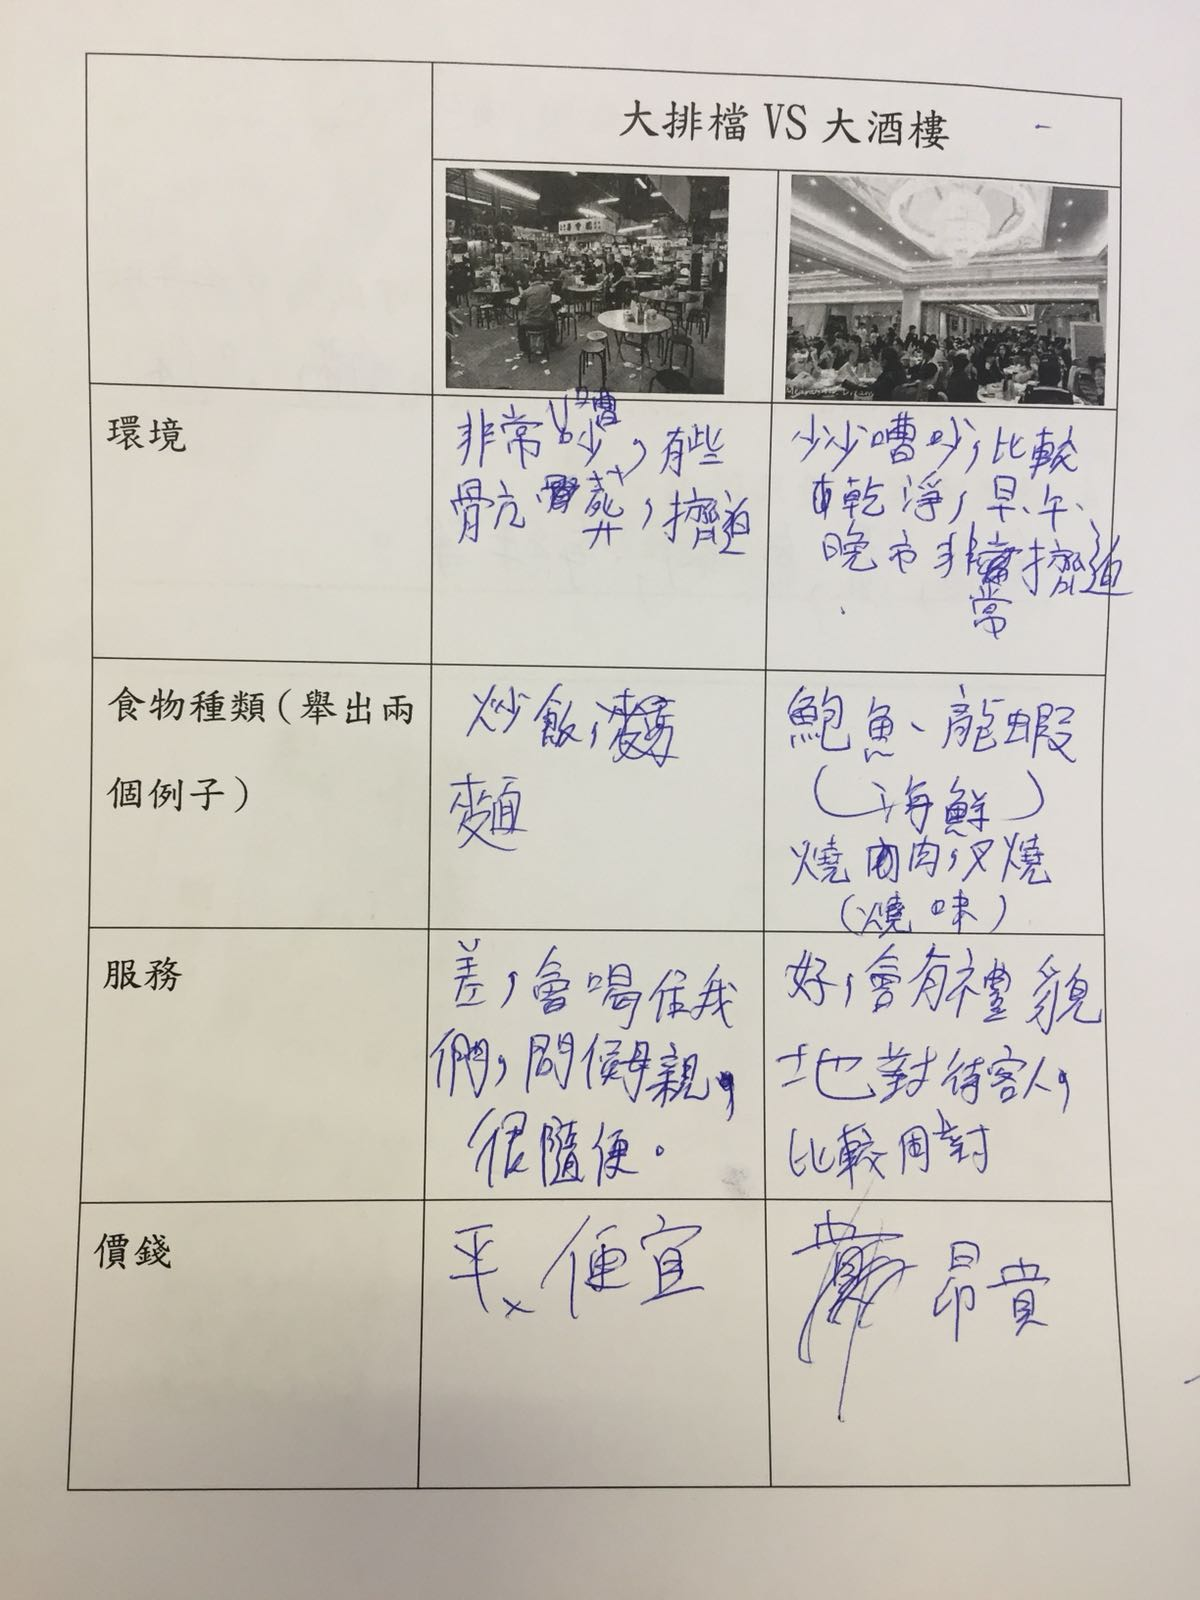 大排檔 VS 大酒樓
環境
非常嘈吵，有些
骯葬，擠逼
少少嘈吵，比較
乾淨，早、午、
晚市非常擠逼
食物種類（舉出兩
個例子）
炒飯，
麵
鮑魚、龍蝦
（海鮮）
燒肉，叉燒
（燒味）
服務
差，會喝住我
們，問候母親，
很隨便。
好，會有禮貌
地對待客人，
比較周對
價錢
平、便宜
昂貴